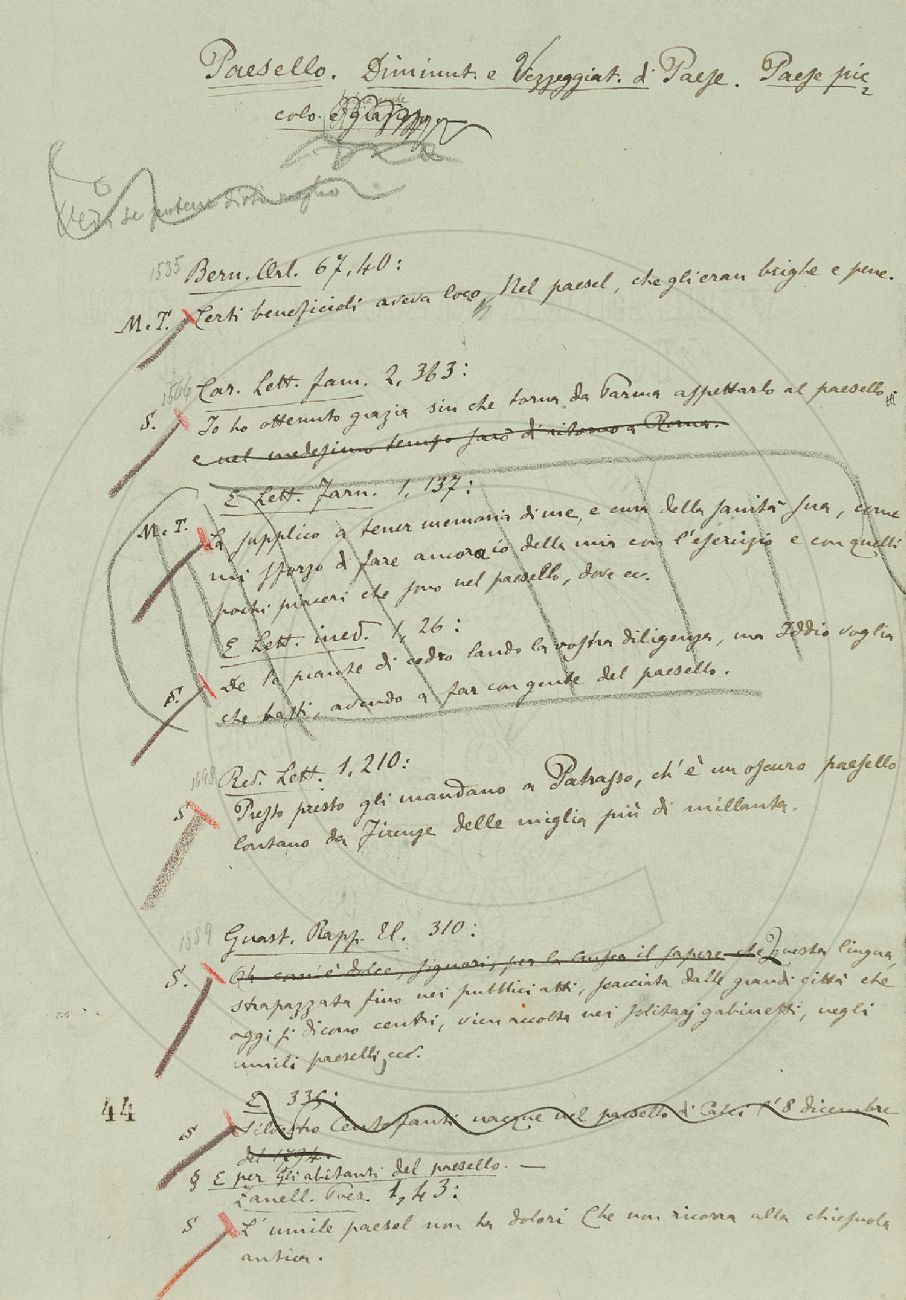 Paesello. Diminut. e Vezzeggiat. di Paese. Paese pic-
colo.
1535
Bern. Orl. 67, 40:
M. T. Certi beneficioli aveva loco Nel paesel, che gli eran brighe e pene.
1566
Car. Lett. fam. 2, 363:
§. Io ho ottenuto grazia sin che torna da Parma aspettarlo al paesello
e nel medesimo tempo farò di ritorno a Roma.
E Lett. Farn. 1, 137:
M. T. La supplico a tener memoria di me, e cura della sanità sua, come
mi sforzo di fare ancora io della mia con l'esercizio e con quelli
pochi piaceri che sono nel paesello, dove ec.
E Lett. ined. 1, 26:
§. De le piante di cedro laudo la vostra diligenza, ma Iddio voglia
che basti, avendo a far con gente del paesello.
1698
Red. Lett. 1, 210:
§ Presto presto gli mandano a Patrasso, ch'è un oscuro paesello
lontano da Firenze delle miglia più di millanta.
1889
Guast. Rapp. El. 310:
§. signori, per la Crusca il sapere che questa lingua,
strapazzata fino nei pubblici atti, scacciata dalle grandi città che
oggi si dicono centri, vien accolta nei solitarj gabinetti, negli
umili paeselli, ec.
44
E 335:
§ Silvestro Centofanti nacque nel paesello di Calci l'8 dicembre
del 1794.
§ E per Gli abitanti del paesello. —
Zanell. Poes. 1, 43:
§ L'umile paesel non ha dolori Che non ricorra alla chiesuola
antica.